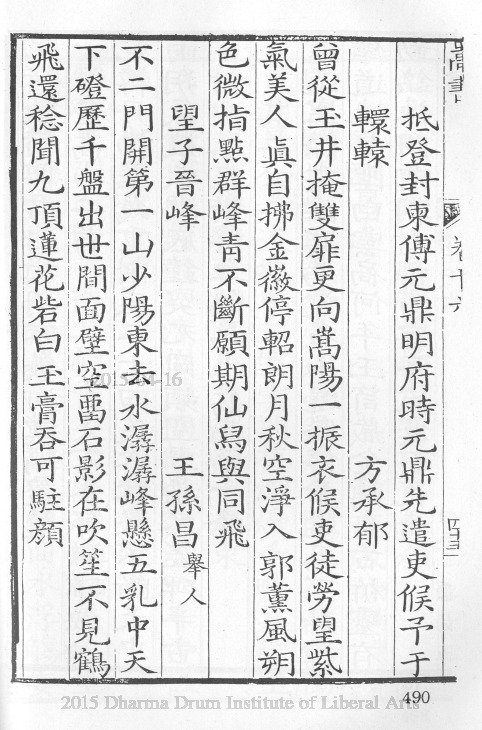 卷十六
抵登封柬傅元鼎明府時元鼎先遣吏候予于
轘轅 方承郁
曾從玉井掩雙扉更向嵩陽一振衣候吏徒勞望紫
氣美人眞自拂金徽停軺朗月秋空淨入郭薰風朔
色微指點群峰青不斷願期仙舃與同飛
望子晉峰 王孫昌舉人
不二門開第一山少陽東去水潺潺峰懸五乳中天
下磴歷千盤出世間面壁空畱石影在吹笙不見鶴
飛還稔聞九頂蓮花砦白玉膏吞可駐顔
490
2015 Dharma Drum Institute of Liberal Arts